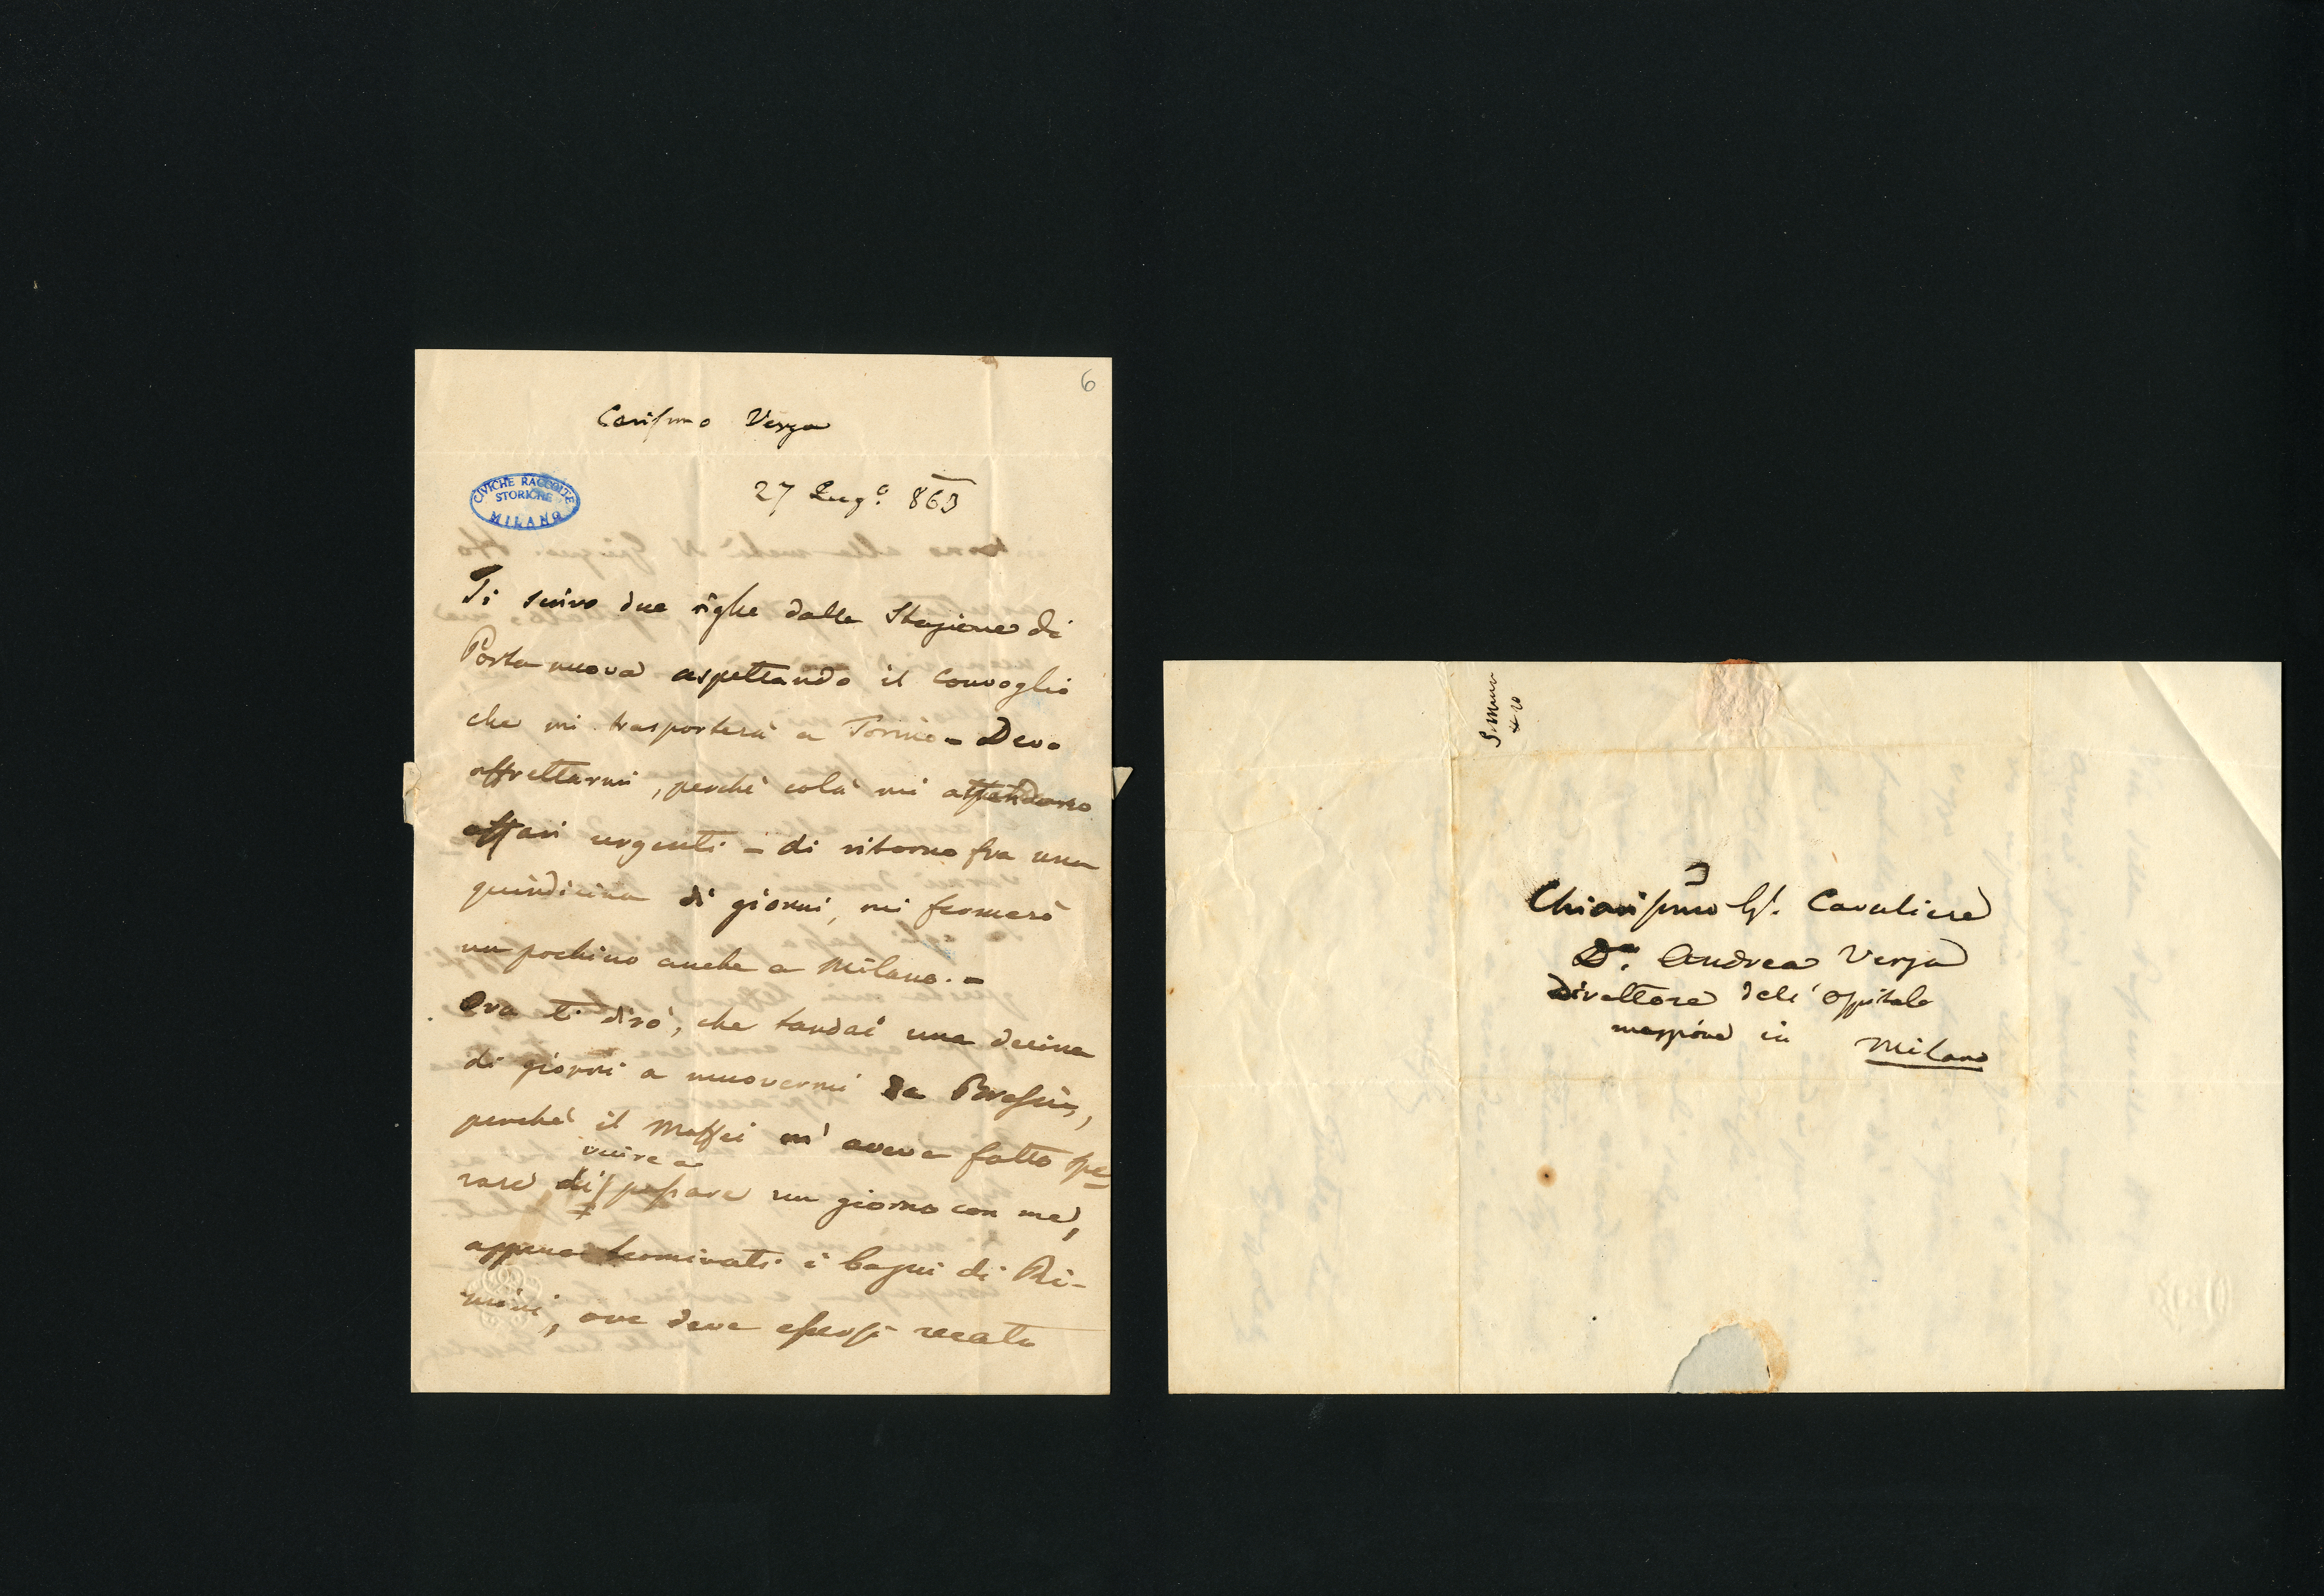 6
Carissimo Verga
CIVICHE RACCOLTE
STORICHE
MILANO
27 Lug.o 863
Ti scrivo due righe dalla Stazione di
Porta nuova aspettando il Convoglio
che mi trasporterà a Torino - Devo
affrettarmi, perchè colà mi attendono
affari urgenti - di ritorno fra una
quindicina di giorni, mi fermerò
un pochino anche a Milano. -
Ora ti dirò, che tardai una decina
di giorni a muovermi da Brescia,
perchè il Maffei m'aveva fatto spe
venire a
rare di passare un giorno con me,
appena terminati i bagni di Ri-
mini, ove deve essersi recato
Chiarissimo Sig. Cavaliere
Dr. Andrea Verga
Direttore dell'Ospitale
maggiore in Milano